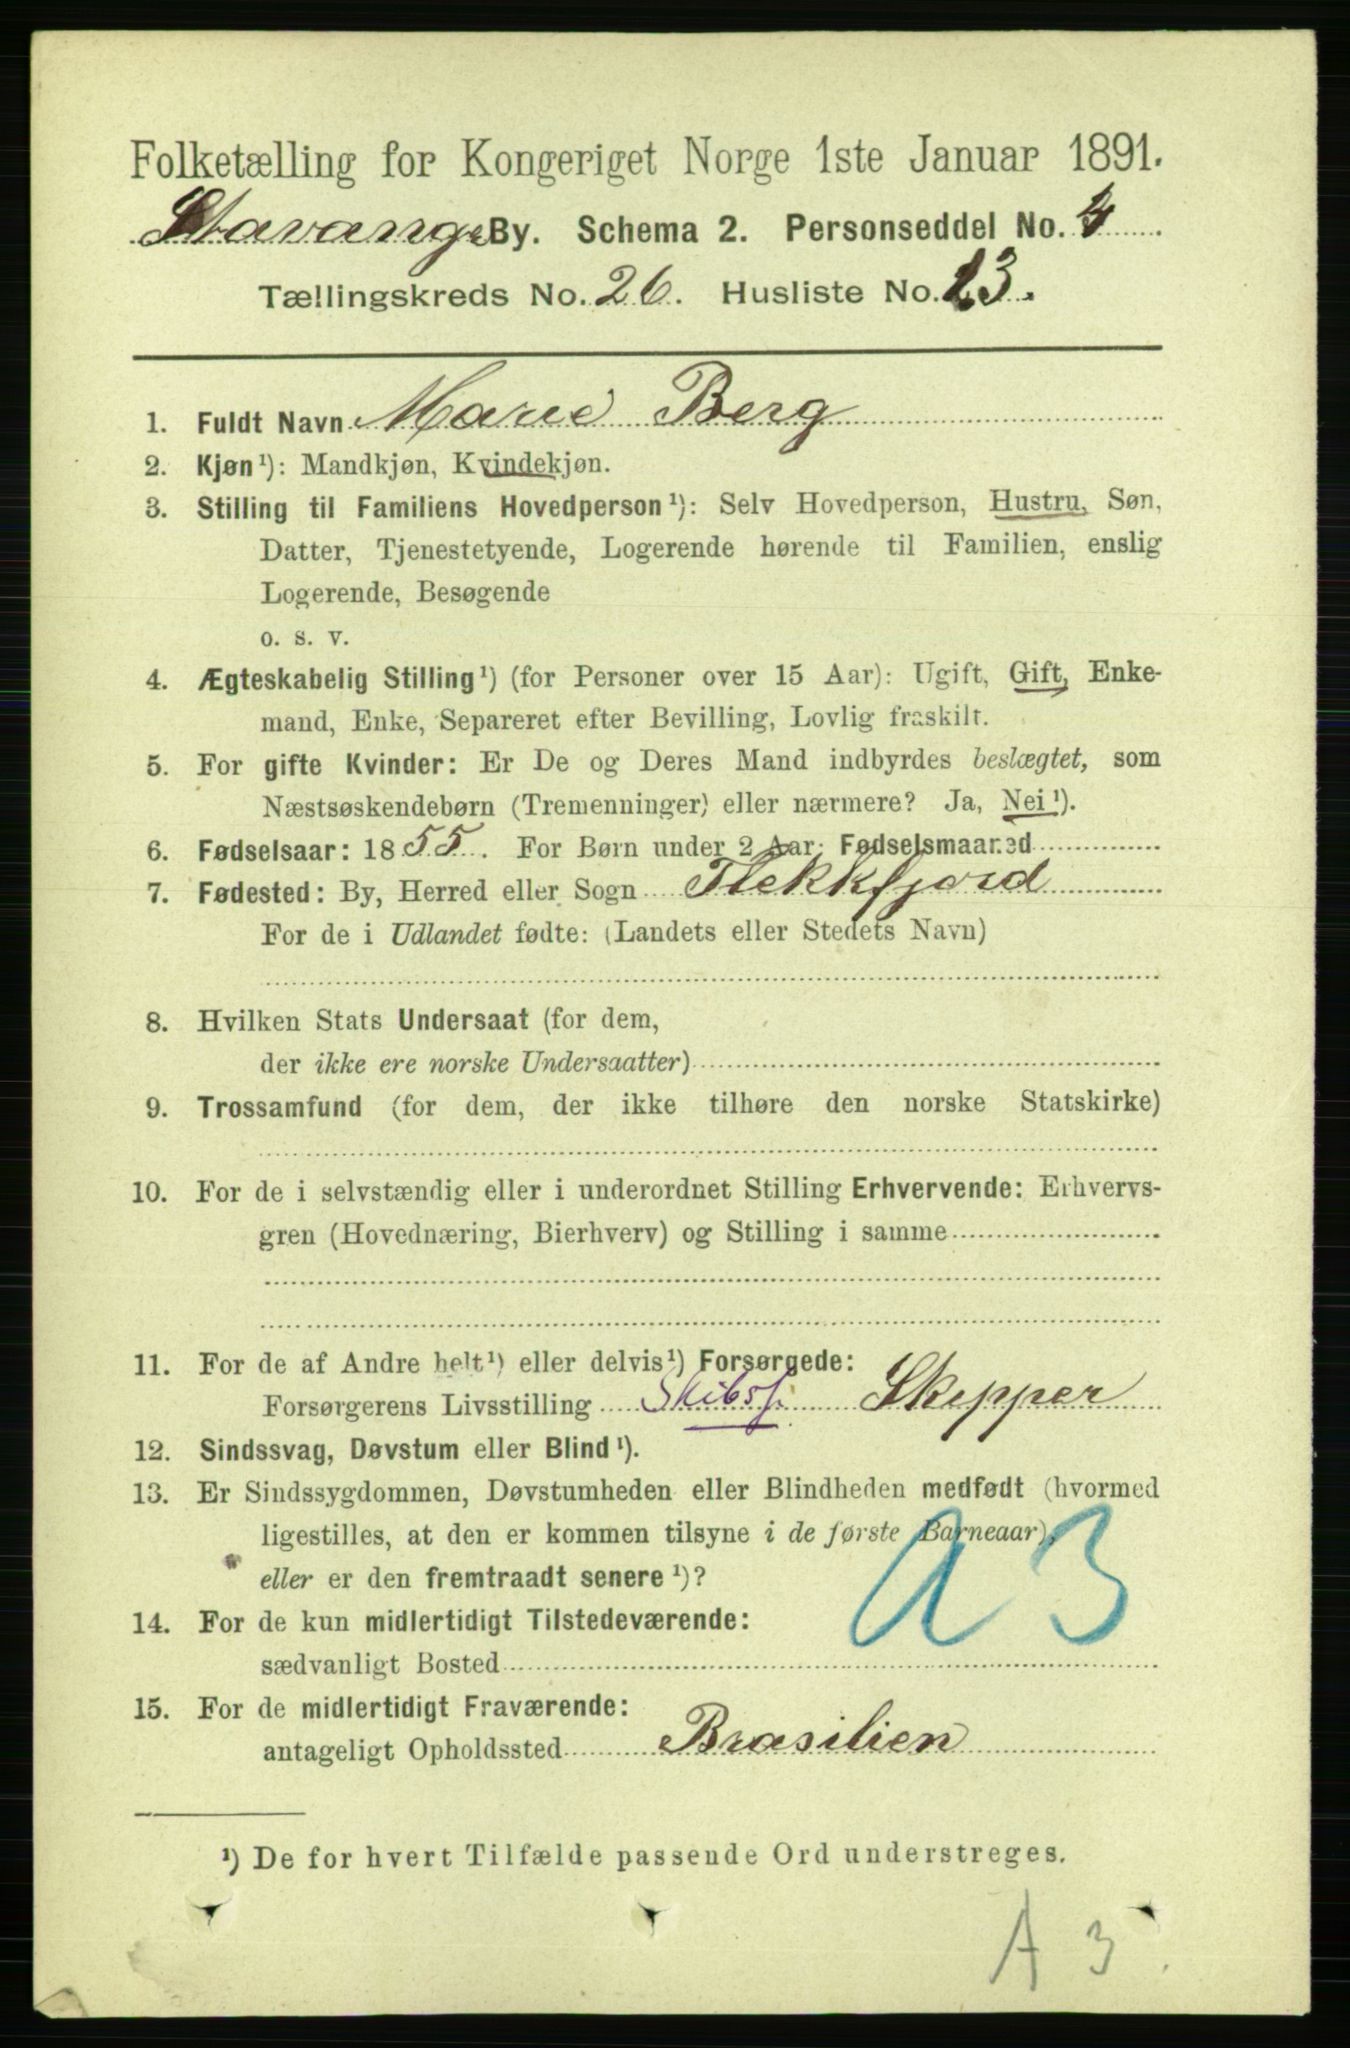 Folketælling for Kongeriget Norge 1ste Januar 1891.
Stavanger By. Schema 2. Personseddel No. 4
Tællingskreds No. 26. Husliste No. 23.
1. Fuldt Navn Marie Berg
2. Kjøn ¹): Mandkjøn, Kvindekjøn.
3. Stilling til Familiens Hovedperson ¹): Selv Hovedperson, Hustru, Søn,
Datter, Tjenestetyende, Logerende hørende til Familien, enslig
Logerende, Besøgende
o. s. v.
4. Ægteskabelig Stilling ¹) (for Personer over 15 Aar): Ugift, Gift, Enke-
mand, Enke, Separeret efter Bevilling, Lovlig fraskilt.
5. For gifte Kvinder: Er De og Deres Mand indbyrdes beslægtet, som
Næstsøskendebørn (Tremenninger) eller nærmere? Ja, Nei ¹).
6. Fødselsaar: 1855. For Børn under 2 Aar: Fødselsmaaned
7. Fødested: By, Herred eller Sogn Flekkfjord
For de i Udlandet fødte: (Landets eller Stedets Navn)
8. Hvilken Stats Undersaat (for dem,
der ikke ere norske Undersaatter)
9. Trossamfund (for dem, der ikke tilhøre den norske Statskirke)
10. For de i selvstændig eller i underordnet Stilling Erhvervende: Erhvervs-
gren (Hovednæring, Bierhverv) og Stilling i samme
11. For de af Andre helt ¹) eller delvis ¹) Forsørgede:
Forsørgerens Livsstilling Skibsf. Skepper
12. Sindssvag, Døvstum eller Blind ¹).
13. Er Sindssygdommen, Døvstumheden eller Blindheden medfødt (hvormed
ligestilles, at den er kommen tilsyne i de første Barneaar),
eller er den fremtraadt senere ¹)?
a 3
14. For de kun midlertidigt Tilstedeværende:
sædvanligt Bosted
15. For de midlertidigt Fraværende:
antageligt Opholdssted Brasilien
¹) De for hvert Tilfælde passende Ord understreges.
A 3.